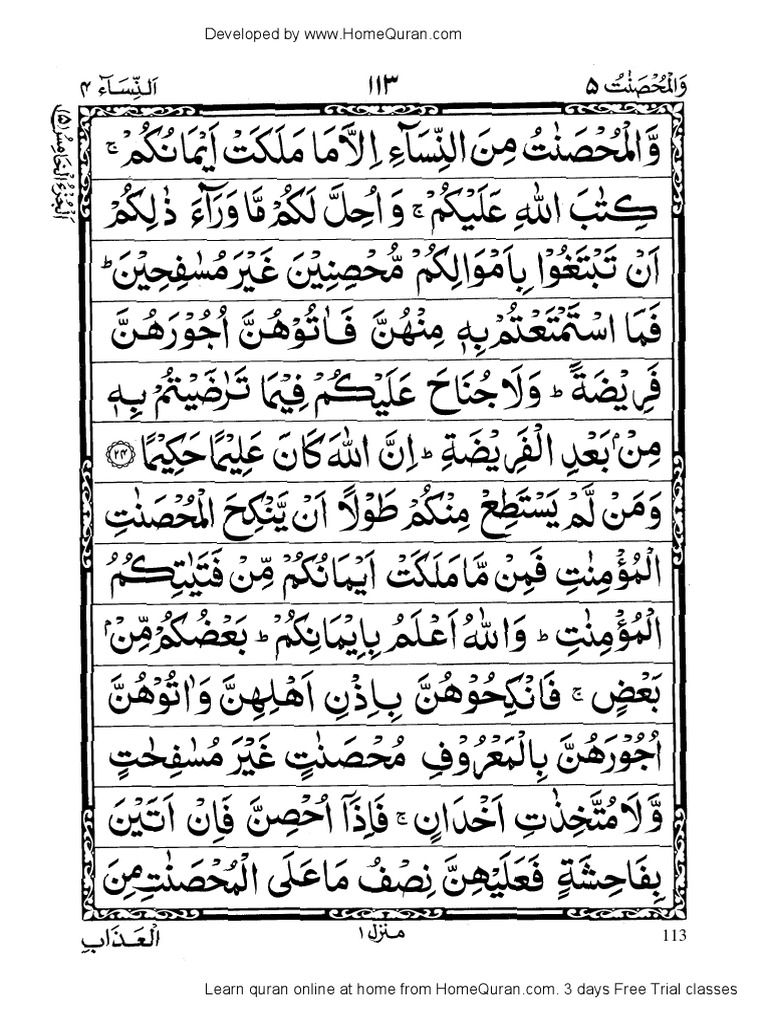 Developed by www.HomeQuran.com
وَالْمُحْصَنٰتُ ۵ ۱۱۳ اَلنِّسَآء ۴
اَلْجُزْءُ الْخَامِسُ (۵)
وَّالْمُحْصَنٰتُ مِنَ النِّسَآءِ اِلَّا مَا مَلَكَتْ اَيْمَانُكُمْ ۚ
كِتٰبَ اللّٰهِ عَلَيْكُمْ ۚ وَ اُحِلَّ لَكُمْ مَّا وَرَآءَ ذٰلِكُمْ
اَنْ تَبْتَغُوْا بِاَمْوَالِكُمْ مُّحْصِنِيْنَ غَيْرَ مُسٰفِحِيْنَ ؕ
فَمَا اسْتَمْتَعْتُمْ بِهٖ مِنْهُنَّ فَاٰتُوْهُنَّ اُجُوْرَهُنَّ
فَرِيْضَةً ؕ وَلَا جُنَاحَ عَلَيْكُمْ فِيْمَا تَرٰضَيْتُمْ بِهٖ
مِنْۢ بَعْدِ الْفَرِيْضَةِ ؕ اِنَّ اللّٰهَ كَانَ عَلِيْمًا حَكِيْمًا ۲۴
وَمَنْ لَّمْ يَسْتَطِعْ مِنْكُمْ طَوْلًا اَنْ يَّنْكِحَ الْمُحْصَنٰتِ
الْمُؤْمِنٰتِ فَمِنْ مَّا مَلَكَتْ اَيْمَانُكُمْ مِّنْ فَتَيٰتِكُمُ
الْمُؤْمِنٰتِ ؕ وَاللّٰهُ اَعْلَمُ بِاِيْمَانِكُمْ ؕ بَعْضُكُمْ مِّنْۢ
بَعْضٍ ۚ فَانْكِحُوْهُنَّ بِاِذْنِ اَهْلِهِنَّ وَاٰتُوْهُنَّ
اُجُوْرَهُنَّ بِالْمَعْرُوْفِ مُحْصَنٰتٍ غَيْرَ مُسٰفِحٰتٍ
وَّلَا مُتَّخِذٰتِ اَخْدَانٍ ۚ فَاِذَآ اُحْصِنَّ فَاِنْ اَتَيْنَ
بِفَاحِشَةٍ فَعَلَيْهِنَّ نِصْفُ مَا عَلَى الْمُحْصَنٰتِ مِنَ
113 منزل ۱ الْعَذَابِ
Learn quran online at home from HomeQuran.com. 3 days Free Trial classes